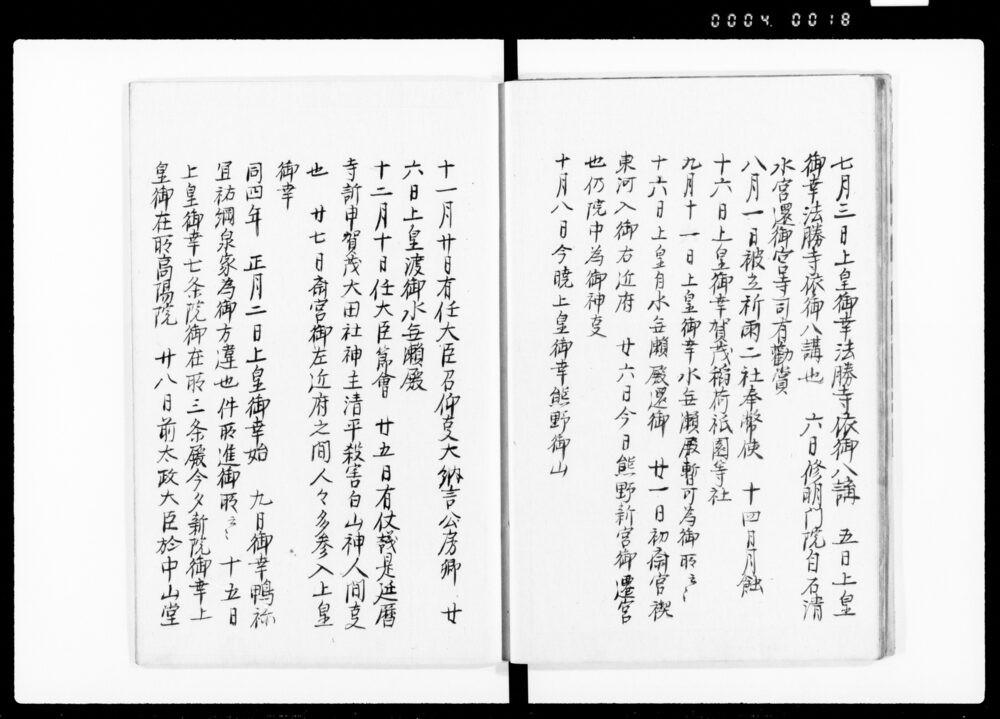 0004 0018
七月三日上皇御幸法勝寺依御八講 五日上皇
御幸法勝寺依御八講也 六日修明門院自石清
水宮還御宮寺司有勸賞
八月一日被立祈雨二社奉幣使 十四日月蝕
十六日上皇御幸賀茂稲荷祇園等社
九月十一日上皇御幸水無瀬殿暫可為御所云〻
十六日上皇自水無瀬殿還御 廿一日初斎宮禊
東河入御右近府 廿六日今日熊野新宮御遷宮
也仍院中為御神事
十月八日今暁上皇御幸熊野御山
十一月廿日有任大臣召仰事大納言公房卿 廿
六日上皇渡御水無瀬殿
十二月十日任大臣節會 廿五日有仗議是延暦
寺訴申賀茂大田社神主清平殺害白山神人間事
也 廿七日斎宮御左近府之間人々多参入上皇
御幸
同四年 正月二日上皇御幸始 九日御幸鴨祢
宜祐綱泉家為御方違也件所進御所云〻 十五日
上皇御幸七条院御在所三条殿今夕新院御幸上
皇御在所高陽院 廿八日前太政大臣於中山堂